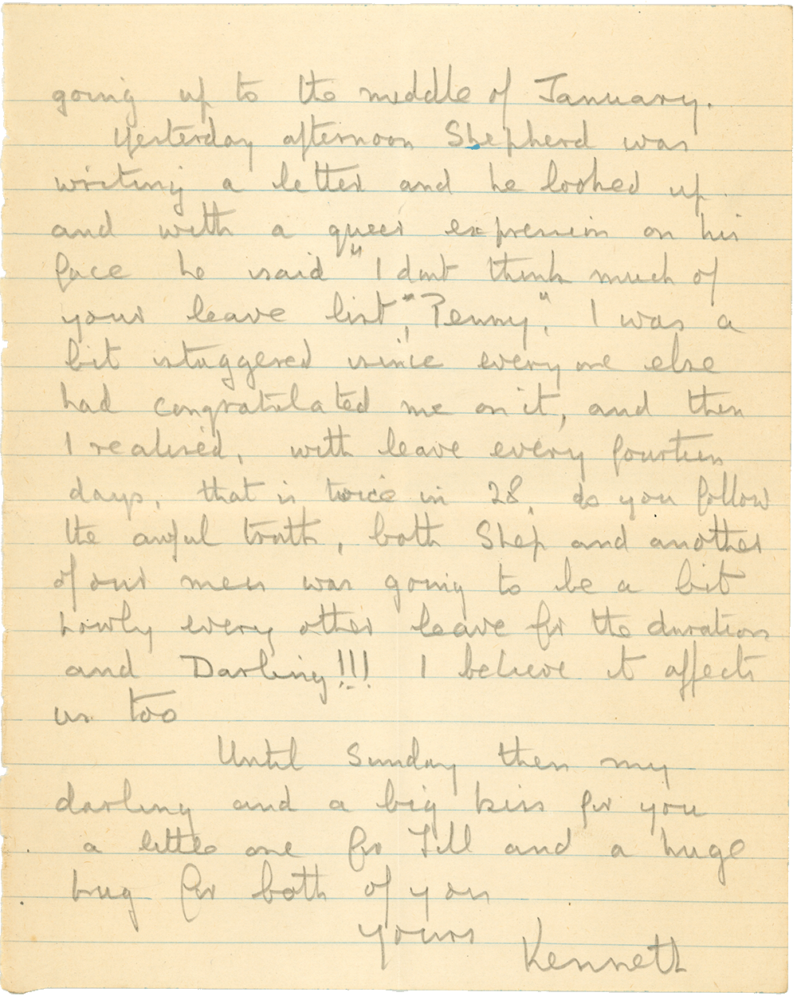 going up to the middle of January.
Yesterday afternoon Shepherd was
writing a letter and he looked up
and with a queer expression on his
face he said "I dont think much of
your leave list", "Penny". I was a
bit staggered since everyone else
had congratulated me on it, and then
I realised, with leave every fourteen
days, that is twice in 28, do you follow
the awful truth, both Shep and another
of our men was going to be a bit
every other leave for the duration
and Darling!!! I believe it affects
us too
Until Sunday then my
darling and a big kiss for you
a little one for Jill and a huge
hug for both of you
yours
Kenneth